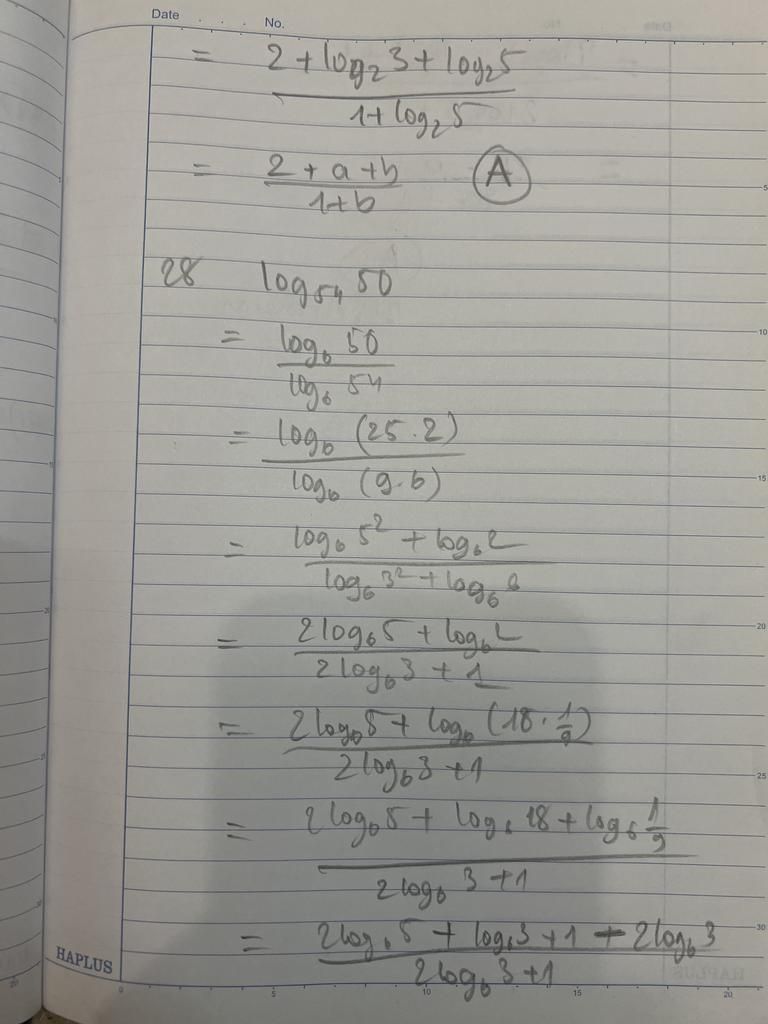 Date . . . No.
= (2 + log₂3 + log₂5) / (1 + log₂5)
= (2 + a + b) / (1 + b) Ⓐ
28 log₅₄ 50
= log₆ 50 / log₆ 54
= log₆ (25 . 2) / log₆ (9 . 6)
= (log₆ 5² + log₆ 2) / (log₆ 3² + log₆ 6)
= (2log₆5 + log₆2) / (2log₆3 + 1)
= (2log₆5 + log₆ (18 . 1/9)) / (2log₆3 + 1)
= (2log₆5 + log₆ 18 + log₆ 1/9) / (2log₆ 3 + 1)
= (2log₆5 + log₆3 + 1 - 2log₆3) / (2log₆3 + 1)
HAPLUS
5
10
15
20
25
30
0 5 10 15 20